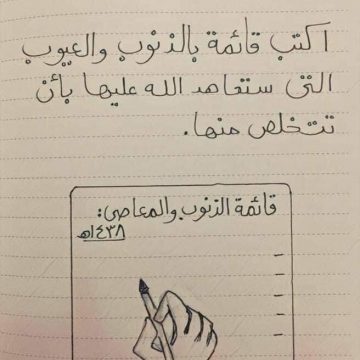 اكتب قائمة بالذنوب والعيوب
التي ستعاهد الله عليها بأن
تتخلص منها.
قائمة الذنوب والمعاصي:
١٤٣٨هـ